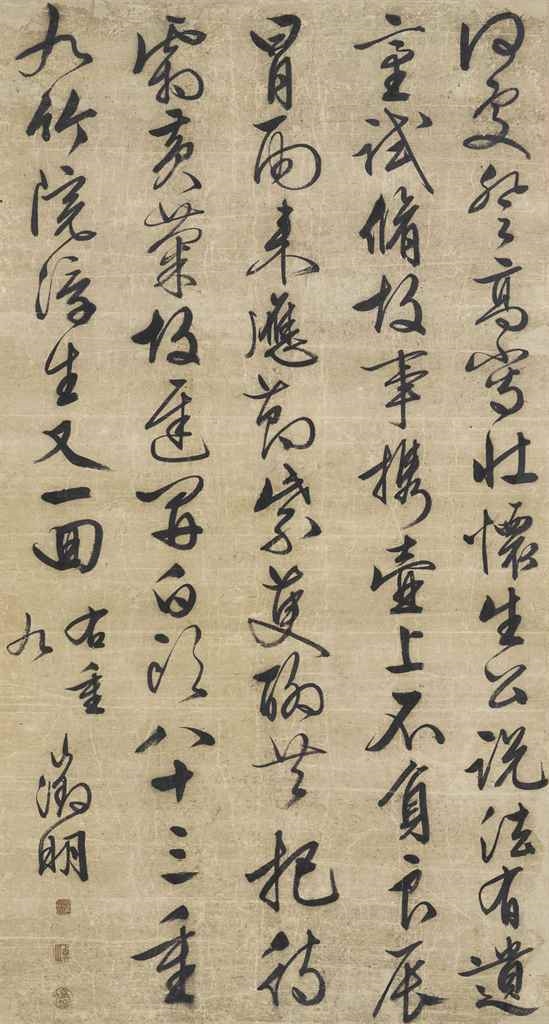 何處登高寄壯懷生公說法有遺
臺試脩故事攜壺上不負良辰
冒雨來應節紫萸聊共把待
霜黃菊故遲開白頭八十三重
九竹院浮生又一回
右重
九
徵明